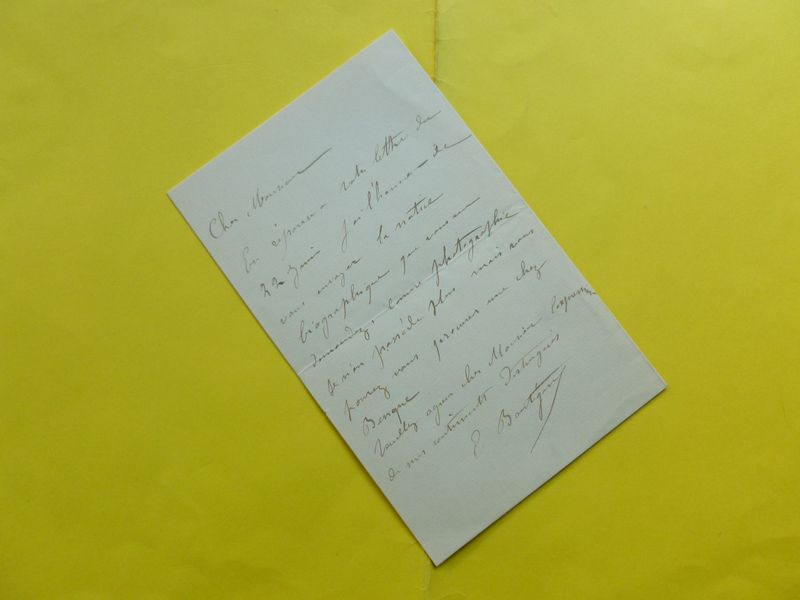 Cher Monsieur
En réponse a votre lettre du
22 Juin j'ai l'honneur de
vous envoyer la notice
biographique que vous me
demandez. Comme photographie
Je n'en possède plus mais vous
pourez vous procurer une chez
Benque
Veuillez agréer cher Monsieur l'expression
de mes sentiments distingués
E Boutigny